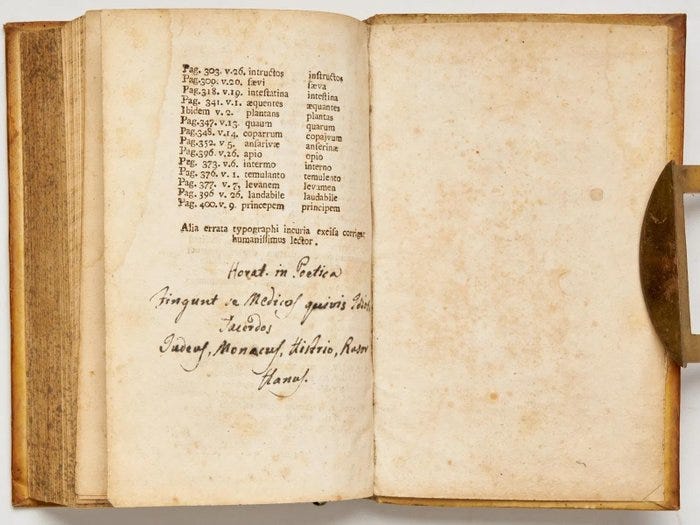 Pag. 303. v.26. intructos instructos
Pag.309. v.20. sævi sæva
Pag.318. v.19. intestatina intestina
Pag. 341. v.1. æquentes æquantes
Ibidem v. 2. plantans plantas
Pag.347. v.13. quaum quarum
Pag.348. v.14. coparrum copajvum
Pag.352. v 5. ansarivæ anserinæ
Pag.396. v.26. apio opio
Peg. 373. v.6. intermo interno
Pag. 376. v. 1. temulanto temulento
Pag. 377. v. 7. levanem levamen
Pag. 396 v. 26. landabile laudabile
Pag. 400. v. 9. princepem principem
Alia errata typographi incuria excisa corriget
humanissimus lector.
Horat. in Poetica
Fingunt se Medicos quivis
Sacerdos
Judeus, Monacus, Histrio, Rasor